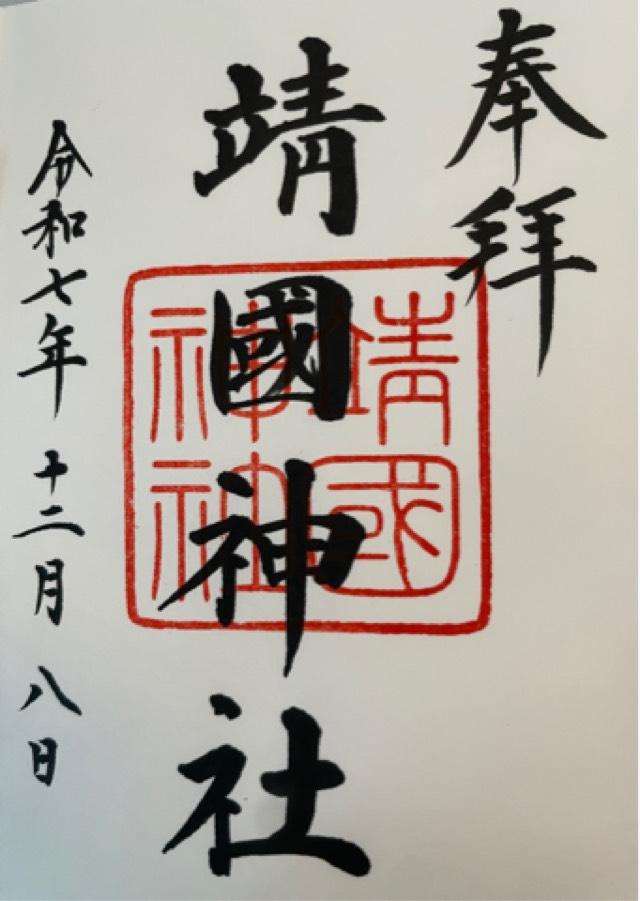 奉拝
靖國神社
靖國神社
令和七年十二月八日